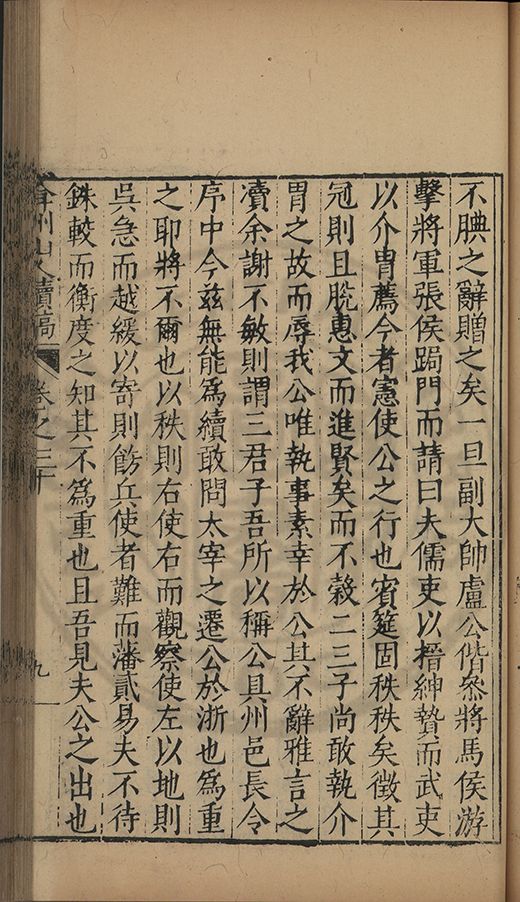 不腆之辭贈之矣一旦副大帥盧公偕叅將馬侯游
擊將軍張侯跼門而請曰夫儒吏以搢紳贄而武吏
以介胄薦今者憲使公之行也賓筵固秩秩矣徵其
冠則且脫惠文而進賢矣而不榖二三子尚敢執介
胄之故而辱我公唯執事素幸於公其不辭雅言之
瀆余謝不敏則謂三君子吾所以稱公具州邑長令
序中今茲無能爲續敢問太宰之遷公於浙也爲重
之耶將不爾也以秩則右使右而觀察使左以地則
吳急而越緩以寄則飭兵使者難而藩貳易夫不待
銖較而衡度之知其不爲重也且吾見夫公之出也
弇州山人續稿
卷之三十
九